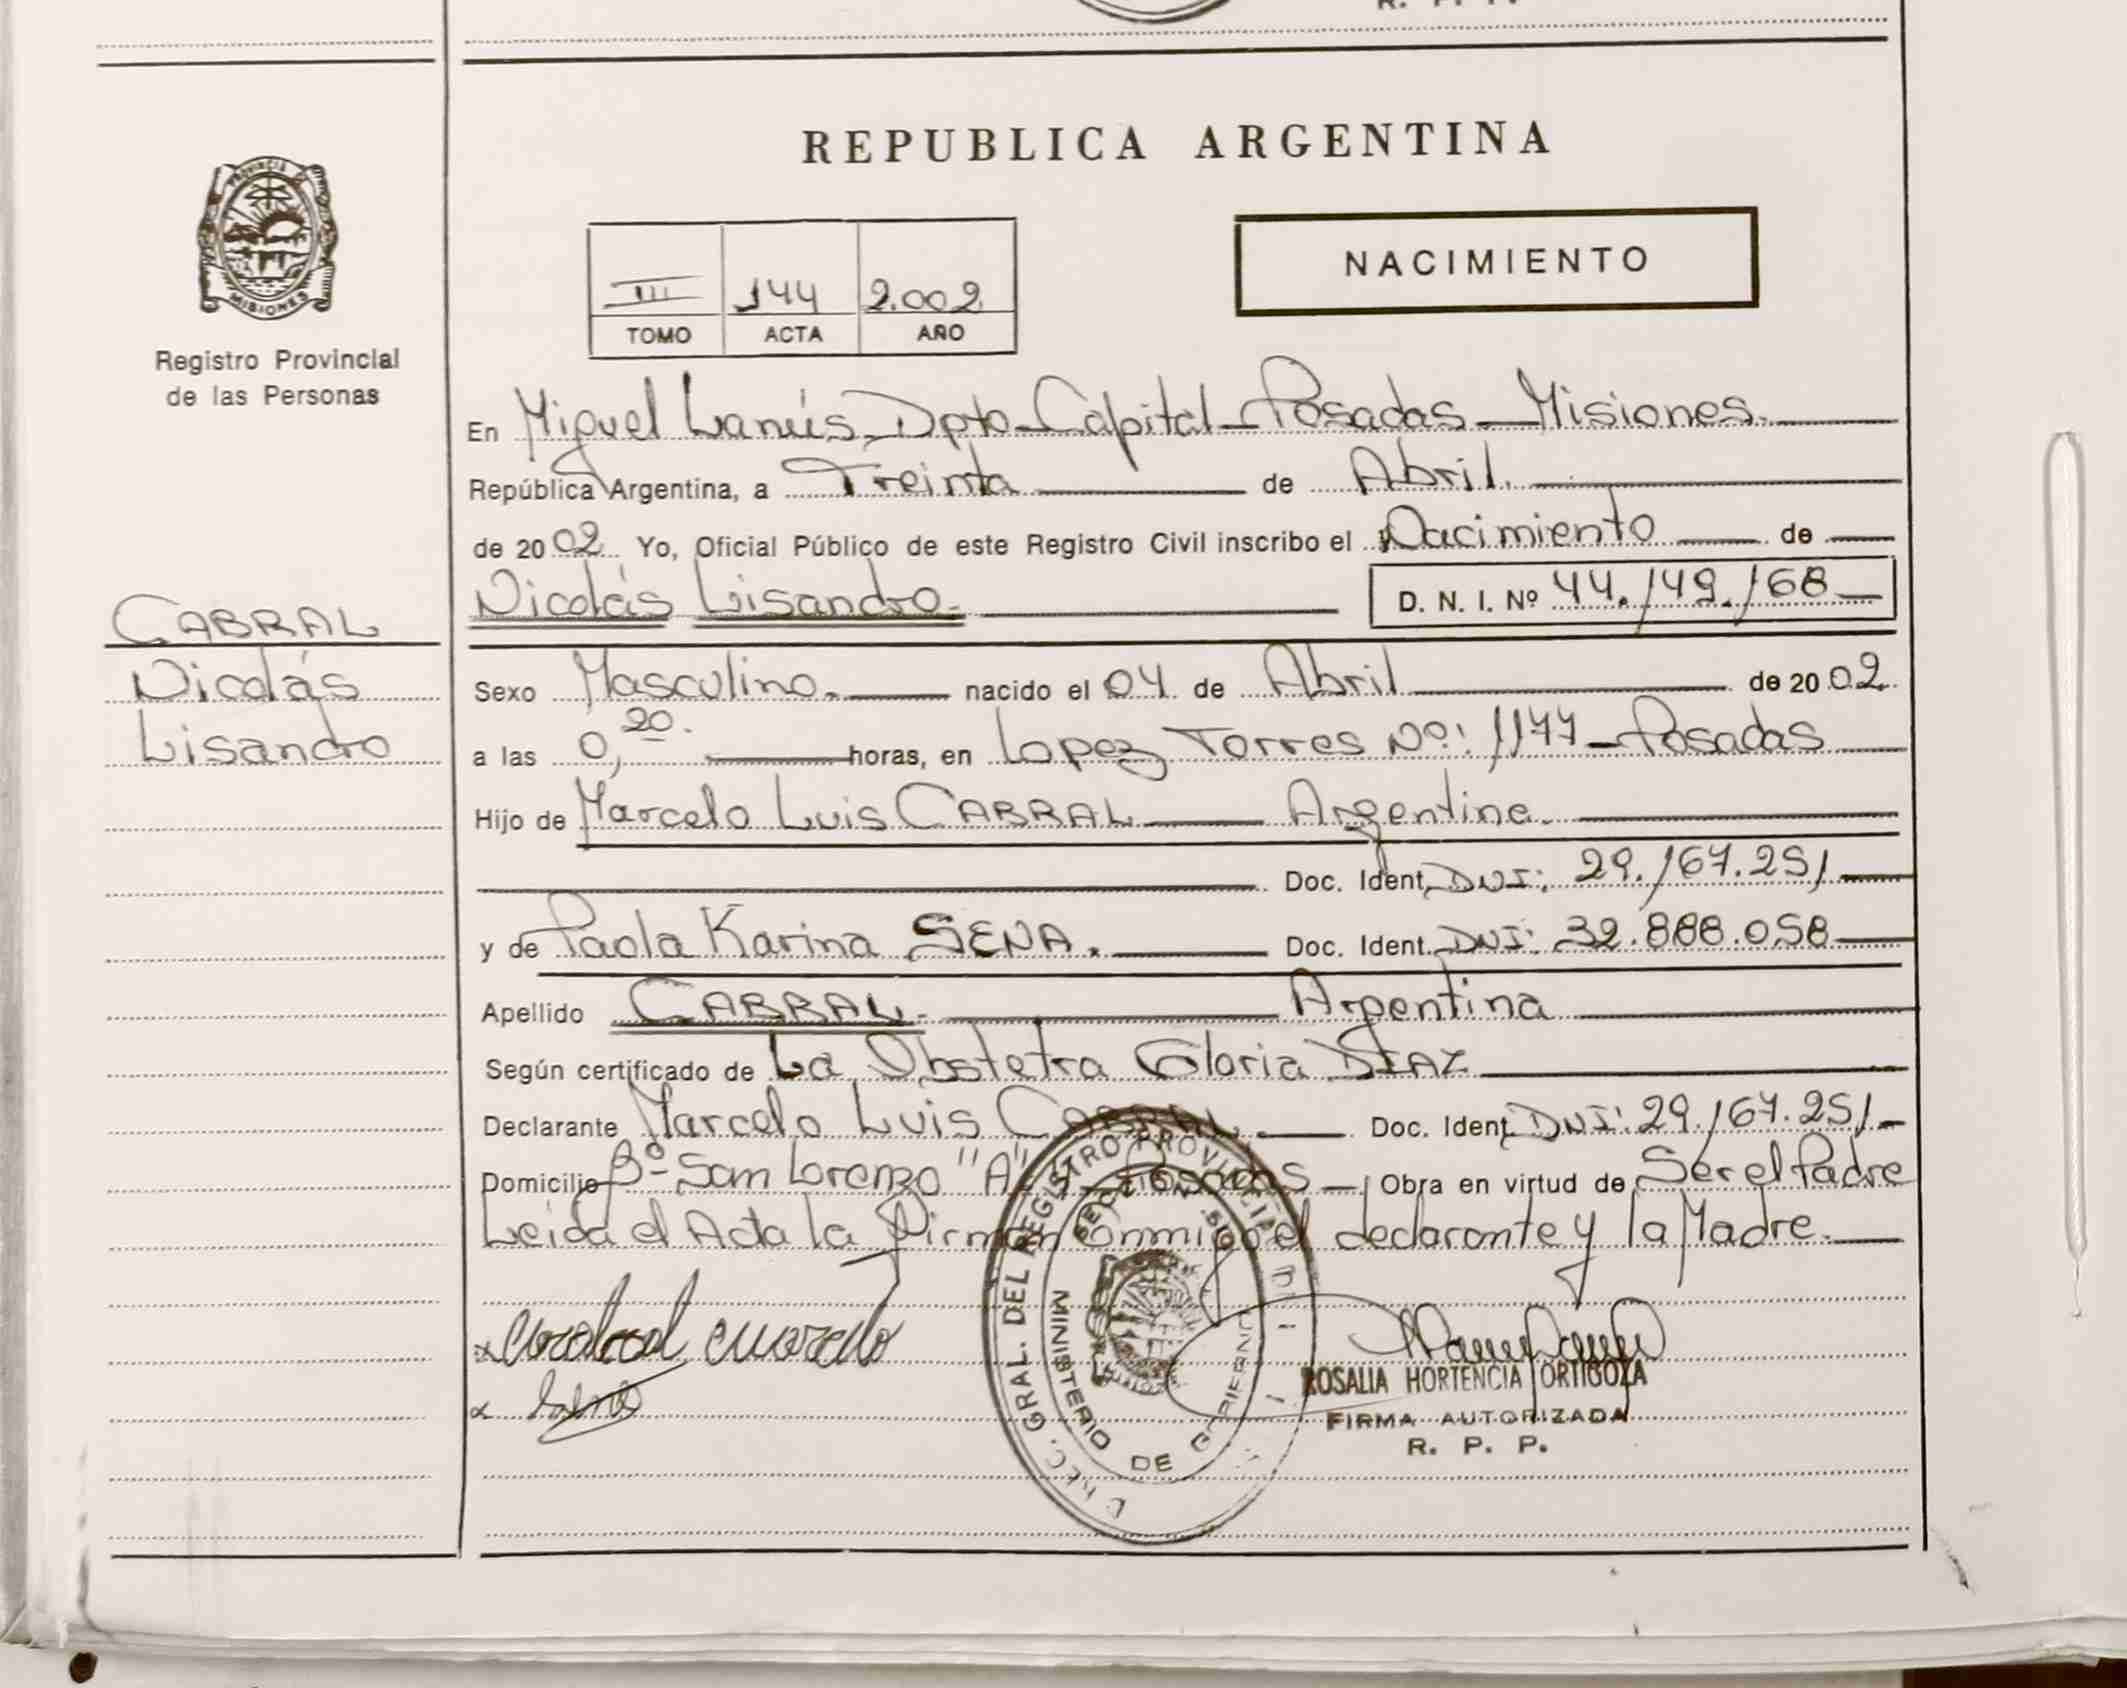 REPUBLICA ARGENTINA
PROVINCIA
MISIONES
Registro Provincial
de las Personas
III 144 2.002
TOMO ACTA AÑO
NACIMIENTO
En Miguel Lanús Dpto Capital Posadas Misiones.
República Argentina, a Treinta de Abril.
de 2002 Yo, Oficial Público de este Registro Civil inscribo el Nacimiento de
Nicolás Lisandro. D. N. I. Nº 44.149.168
CABRAL
Nicolás
Lisandro
Sexo Masculino. nacido el 04 de Abril de 2002.
a las 0,20. horas, en Lopez Torres Nº: 1177 Posadas
Hijo de Marcelo Luis CABRAL Argentina.
Doc. Ident. DNI: 29.167.251
y de Paola Karina SENA. Doc. Ident. DNI: 32.888.058
Apellido CABRAL. Argentina
Según certificado de La Obstetra Gloria DIAZ
Declarante Marcelo Luis CABRAL. Doc. Ident. DNI: 29.167.251
Domicilio Bº San Lorenzo "A" Posadas Obra en virtud de Ser el Padre
Leida el Acta la Firman Conmigo el declarante y la Madre.
GRAL. DEL REGISTRO PROVINCIAL
MINISTERIO DE GOBIERNO
ROSALIA HORTENCIA ORTIGOZA
FIRMA AUTORIZADA
R. P. P.